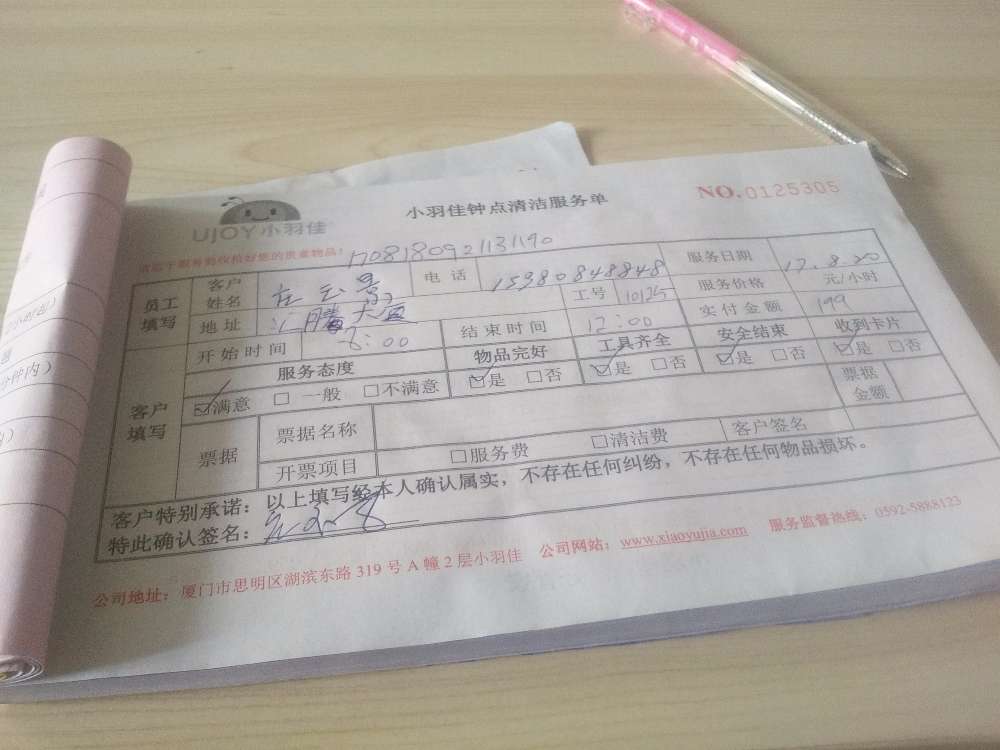 UJOY小羽佳
小羽佳钟点清洁服务单
NO.0125305
1708180921131190
员工填写
客户姓名
电话 15980848848
服务日期 17.8.20
地址 汇腾大厦
工号 10125
服务价格 元/小时
开始时间 8:00
结束时间 12:00
实付金额 199
客户填写
服务态度 物品完好 工具齐全 安全结束 收到卡片
☑满意 □一般 □不满意 ☑是 □否 ☑是 □否 ☑是 □否 ☑是 □否
票据
票据名称
票据金额
开票项目 □服务费 □清洁费 客户签名
客户特别承诺：以上填写经本人确认属实，不存在任何纠纷，不存在任何物品损坏。
特此确认签名：
公司地址：厦门市思明区湖滨东路 319 号 A 幢 2 层小羽佳 公司网站：www.xiaoyujia.com 服务监督热线：0592-5888123